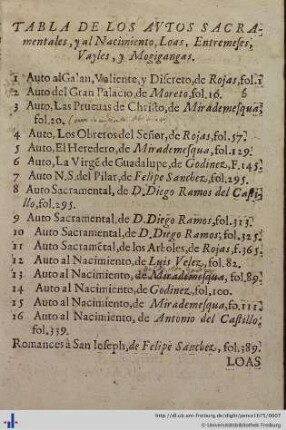 TABLA DE LOS AVTOS SACRA-
mentales, y al Nacimiento, Loas, Entremeses,
Vayles, y Mogigangas.
1 Auto alGalan, Valiente, y Discreto, de Rojas, fol.1
2 Auto del Gran Palacio, de Moreto, fol.16.
3 Auto, Las Pruevas de Christo, de Mirademesqua,
fol.20.
4 Auto, Los Obreros del Señor, de Rojas, fol.57.
5 Auto, El Heredero, de Mirademesqua, fol.129.
6 Auto, La Virgẽ de Guadalupe, de Godinez, F.145.
7 Auto N.S. del Pilar, de Felipe Sanchez, fol.295.
8 Auto Sacramental, de D. Diego Ramos del Casti-
llo, fol.295.
9 Auto Sacramental, de D. Diego Ramos, fol.313.
10 Auto Sacramental, de D. Diego Ramos, fol.325.
11 Auto Sacramẽtal, de los Arboles, de Rojas, f.365.
12 Auto al Nacimiento, de Luis Velez, fol.82.
13 Auto al Nacimiento, de Mirademesqua, fol.89.
14 Auto al Nacimiento, de Godinez, fol.100.
15 Auto al Nacimiento, de Mirademesqua, fo.111.
16 Auto al Nacimiento, de Antonio del Castillo,
fol.339.
Romances à San Ioseph, de Felipe Sanchez, fol.389.
LOAS
http://dl.ub.uni-freiburg.de/diglit/perez1675/0007
© Universitätsbibliothek Freiburg